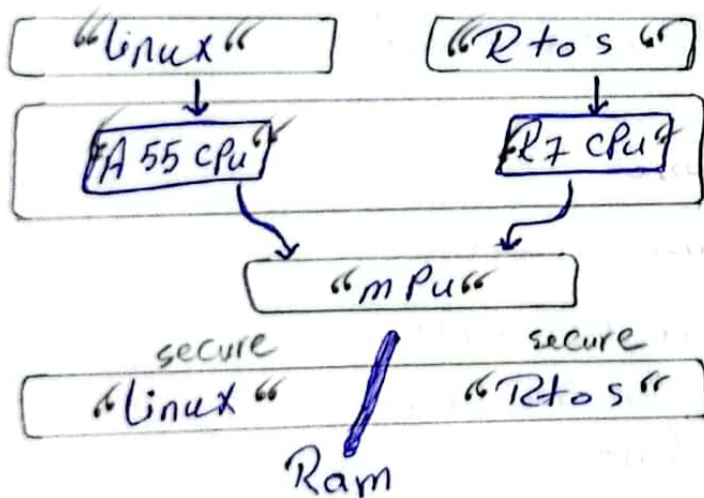 “Linux“ “Rtos“
“A55 CPu“ “R7 CPu“
“mPu“
secure secure
“Linux“ “Rtos“
Ram